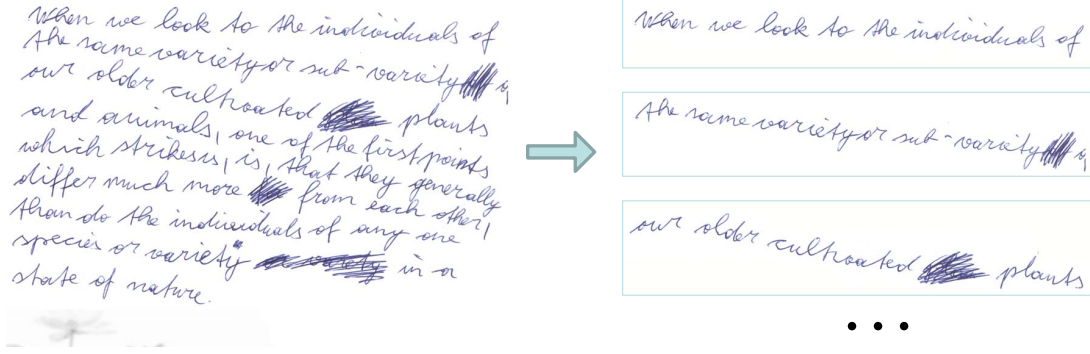 When we look to the individuals of
the same variety or sub-variety
our older cultivated plants
and animals, one of the first points
which strikes us, is, that they generally
differ much more from each other,
than do the individuals of any one
species or variety in a
state of nature.
When we look to the individuals of
the same variety or sub-variety
our older cultivated plants
...